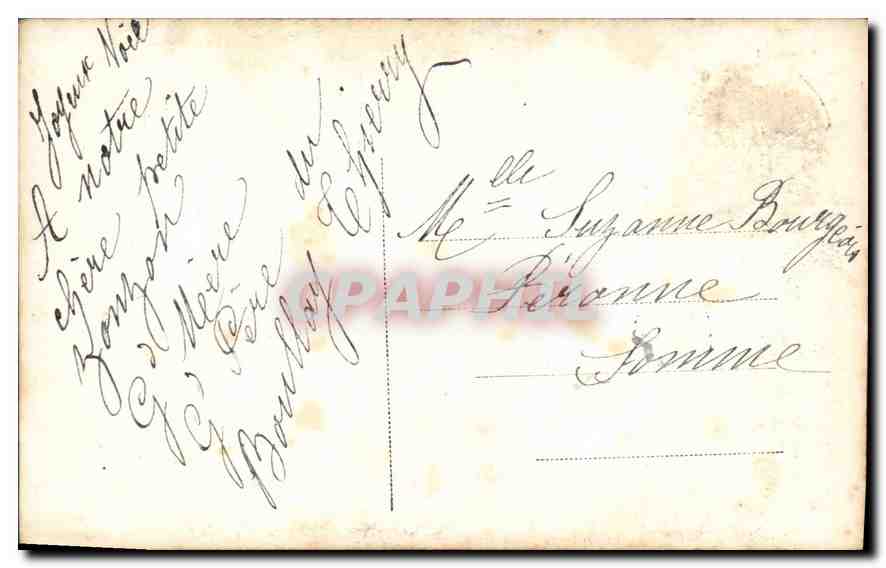 Joyeux Noël
A notre
chère petite
Zonzon
Gd Mère
Gd Père du
Boullay Thierry
Melle Suzanne Bourgeois
Péronne
Somme
CPAPHIL